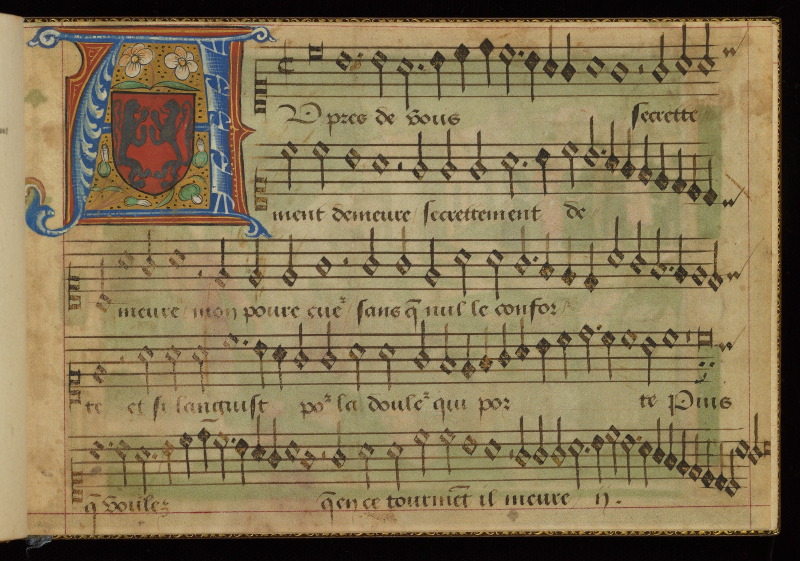 Aupres de vous secrette
ment demeure / secrettement de
meure / mon poure cueˀ sans q̄ nul le confor
te et si languist poˀ la douleˀ qui por te Puis
q̄ voulez q̄ en ce tourmēt il meure ij.